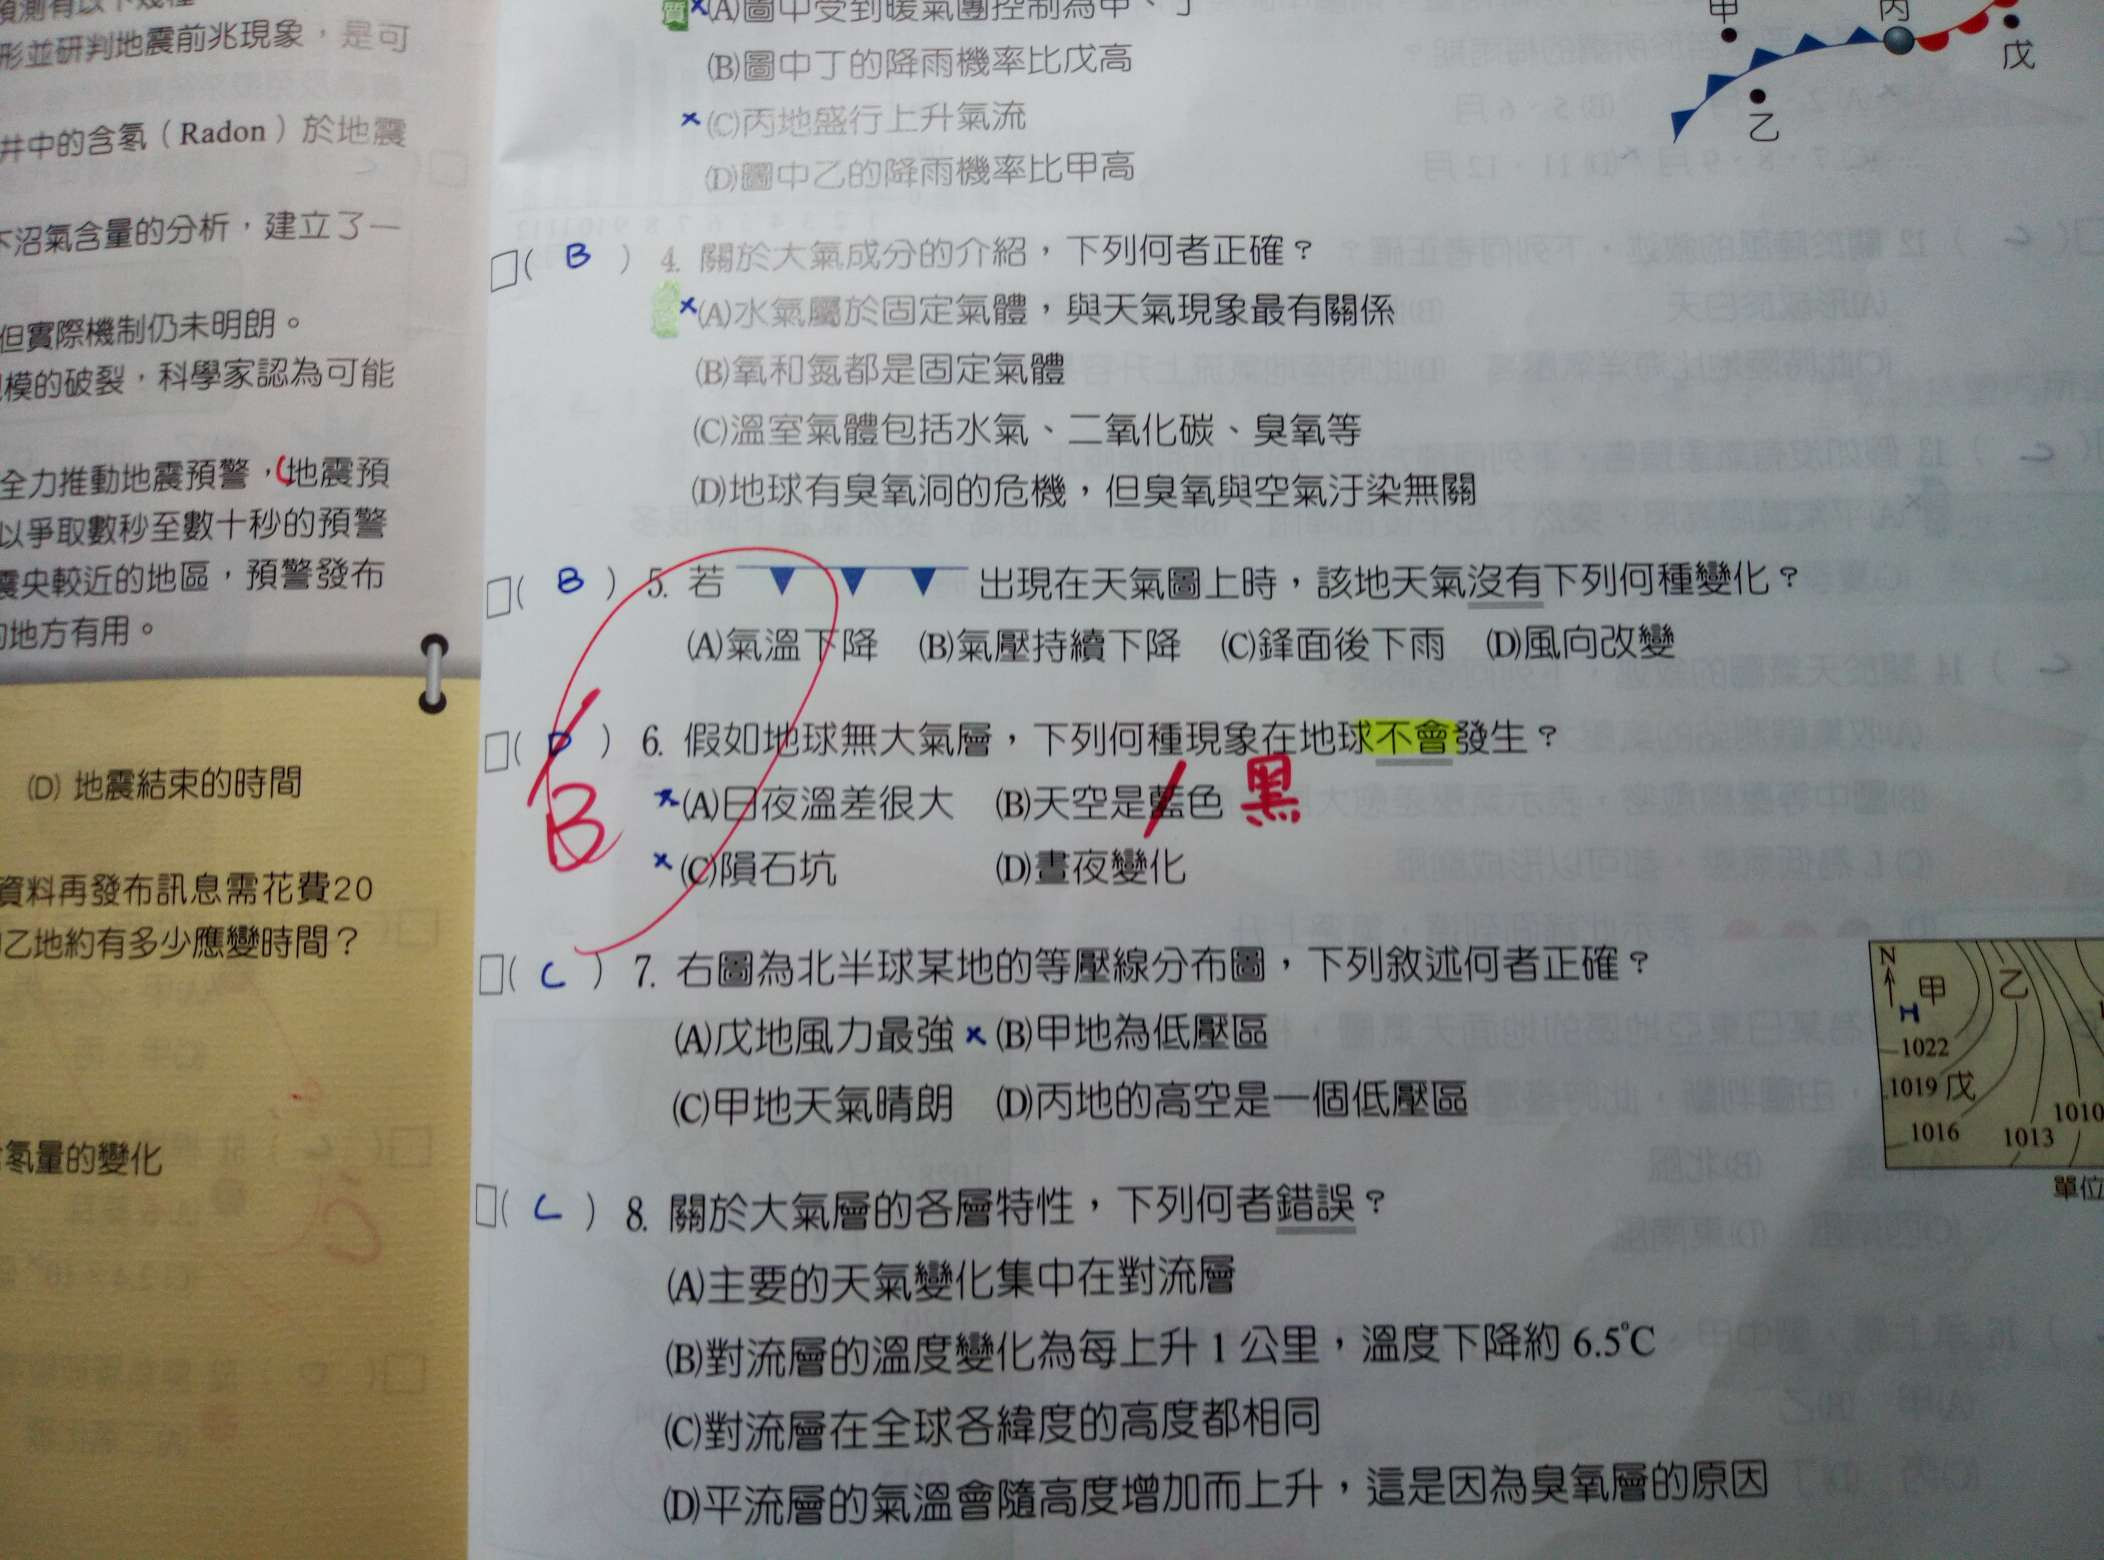 形並研判地震前兆現象，是可
井中的含氡（Radon）於地震
下沼氣含量的分析，建立了一
但實際機制仍未明朗。
模的破裂，科學家認為可能
全力推動地震預警，地震預
以爭取數秒至數十秒的預警
震央較近的地區，預警發布
的地方有用。
(D) 地震結束的時間
資料再發布訊息需花費20
乙地約有多少應變時間？
含氡量的變化
(A)圖中受到暖氣團控制為甲、丁
(B)圖中丁的降雨機率比戊高
×(C)丙地盛行上升氣流
(D)圖中乙的降雨機率比甲高
甲
丙
戊
乙
□( B ) 4. 關於大氣成分的介紹，下列何者正確？
×(A)水氣屬於固定氣體，與天氣現象最有關係
(B)氧和氮都是固定氣體
(C)溫室氣體包括水氣、二氧化碳、臭氧等
(D)地球有臭氧洞的危機，但臭氧與空氣汙染無關
□( B ) 5. 若 出現在天氣圖上時，該地天氣沒有下列何種變化？
(A)氣溫下降 (B)氣壓持續下降 (C)鋒面後下雨 (D)風向改變
□( D ) 6. 假如地球無大氣層，下列何種現象在地球不會發生？
B
×(A)日夜溫差很大 (B)天空是藍色 黑
×(C)隕石坑 (D)晝夜變化
□( C ) 7. 右圖為北半球某地的等壓線分布圖，下列敘述何者正確？
(A)戊地風力最強 ×(B)甲地為低壓區
(C)甲地天氣晴朗 (D)丙地的高空是一個低壓區
N
甲
乙
H
1022
1019 戊
1010
1016
1013
單位
□( C ) 8. 關於大氣層的各層特性，下列何者錯誤？
(A)主要的天氣變化集中在對流層
(B)對流層的溫度變化為每上升 1 公里，溫度下降約 6.5℃
(C)對流層在全球各緯度的高度都相同
(D)平流層的氣溫會隨高度增加而上升，這是因為臭氧層的原因